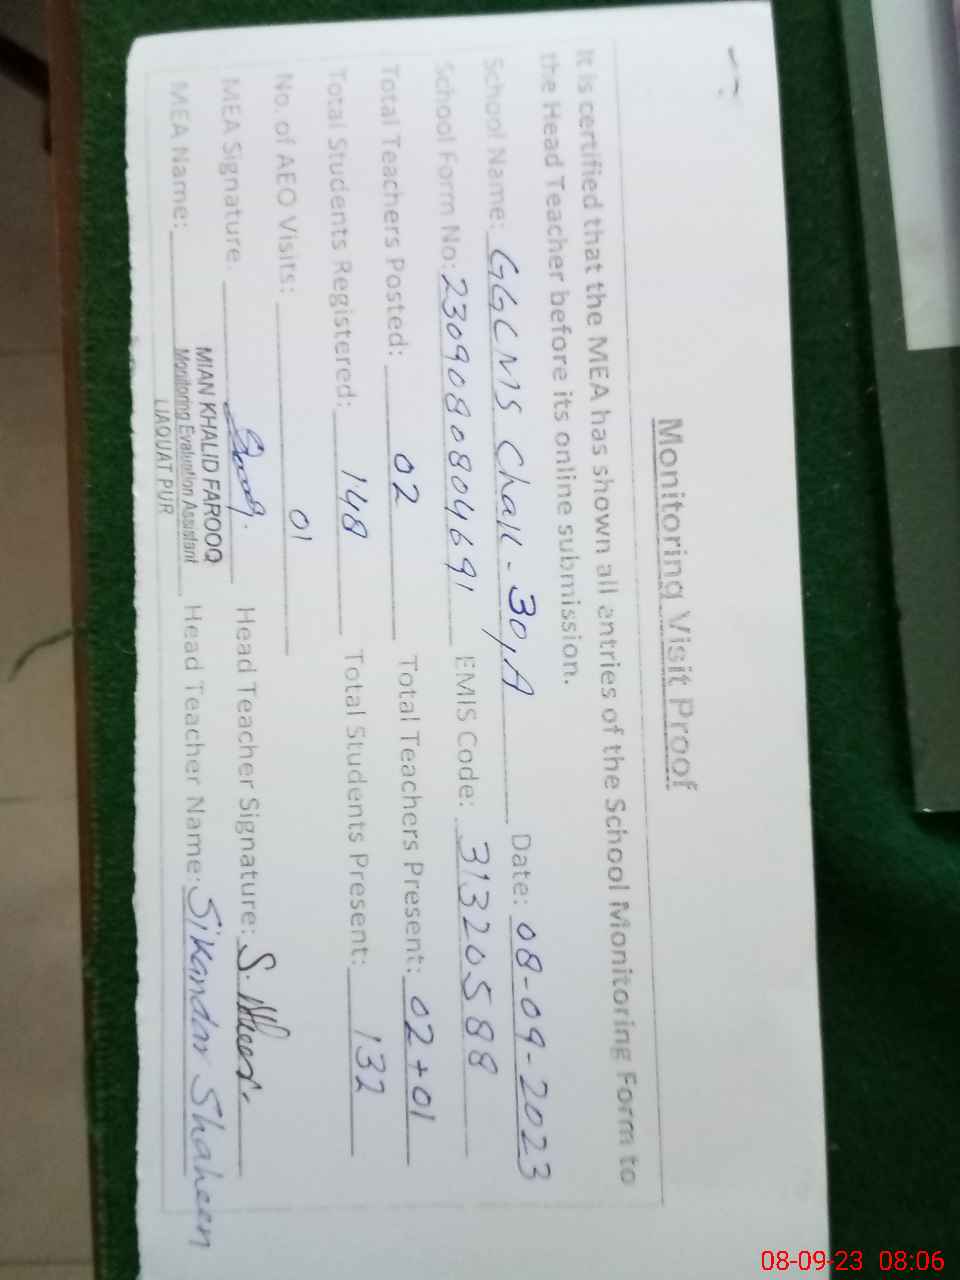 Monitoring Visit Proof
It is certified that the MEA has shown all entries of the School Monitoring Form to
the Head Teacher before its online submission.
School Name: GGCMS Chall-30,A Date: 08-09-2023
School Form No: 230908080804691 EMIS Code: 31320588
Total Teachers Posted: 02 Total Teachers Present: 02+01
Total Students Registered: 148 Total Students Present: 132
No. of AEO Visits: 01
MEA Signature: Head Teacher Signature: S.
MEA Name: MIAN KHALID FAROOQ Head Teacher Name: Sikandar Shaheen
Monitoring Evaluation Assistant
LIAQUAT PUR
08-09-23 08:06